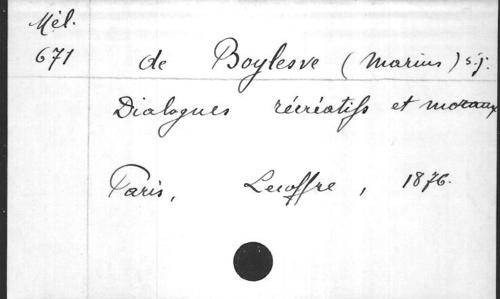 Mél.
671
de Boylesve (Marius) s.j.
Dialogues récréatifs et moraux
Paris, Lecoffre, 1876.